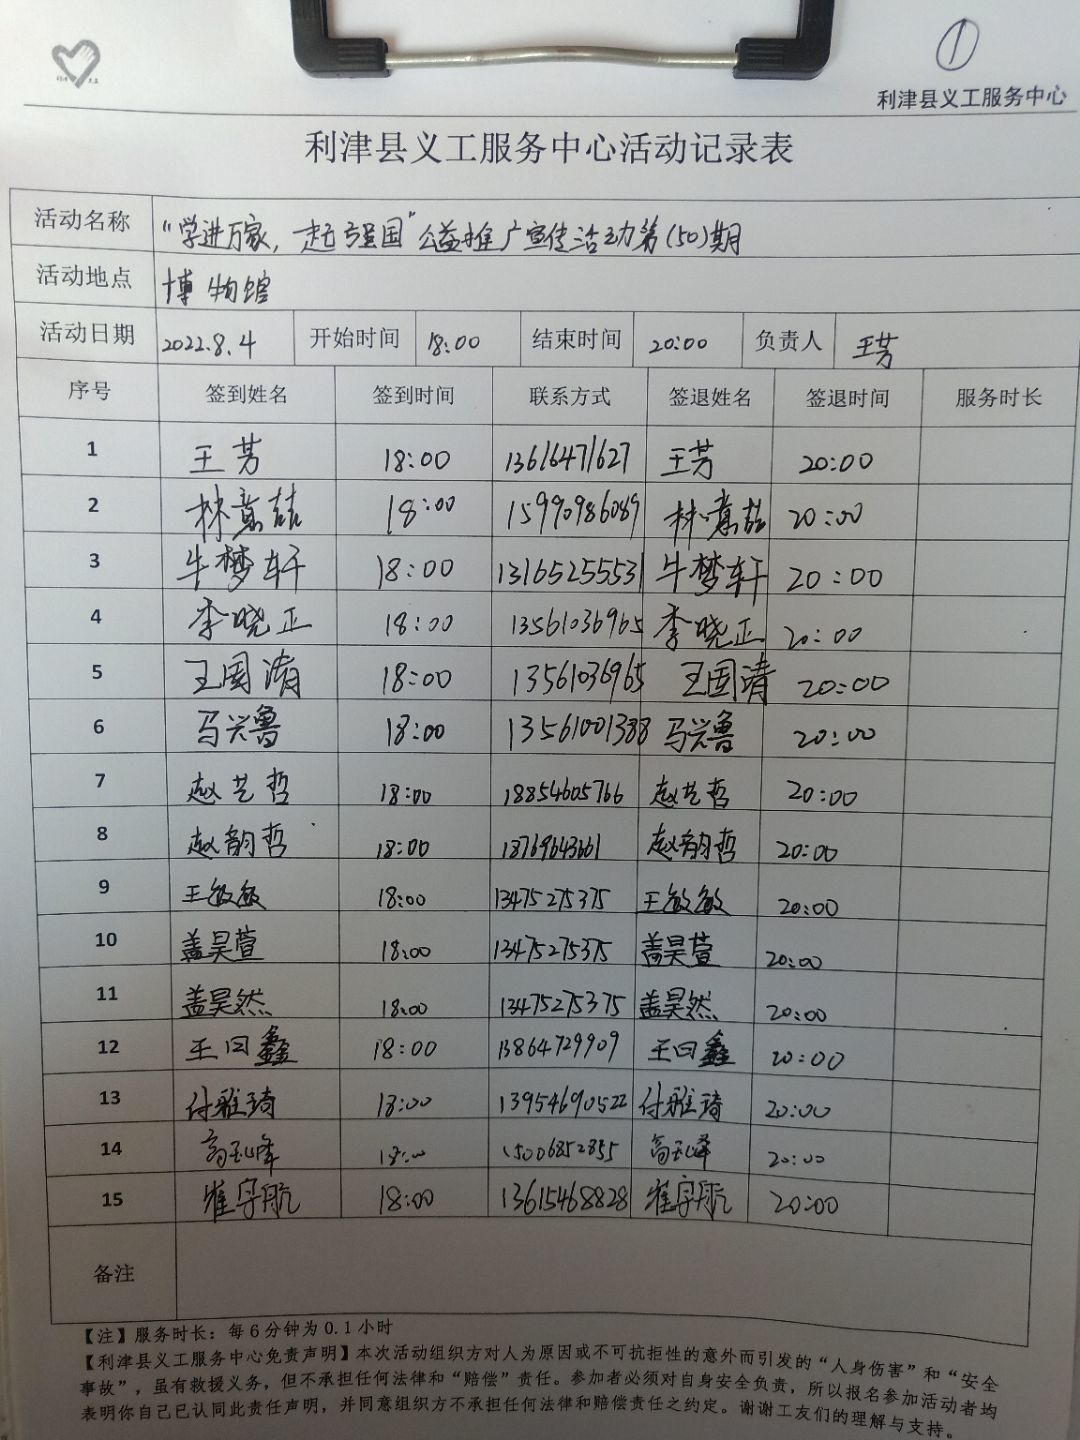 ①
利津县义工服务中心
利津县义工服务中心活动记录表
活动名称 “学进万家，起强国”公益推广宣传活动第(50)期
活动地点 博物馆
活动日期 2022.8.4 开始时间 18:00 结束时间 20:00 负责人 王芳
序号 签到姓名 签到时间 联系方式 签退姓名 签退时间 服务时长
1 王芳 18:00 13616471627 王芳 20:00
2 林意喆 18:00 15990986089 林意喆 20:00
3 牛梦轩 18:00 13165255531 牛梦轩 20:00
4 李晓正 18:00 13561036965 李晓正 20:00
5 王国清 18:00 13561036965 王国清 20:00
6 马兴鲁 18:00 13561001388 马兴鲁 20:00
7 赵艺哲 18:00 18854605766 赵艺哲 20:00
8 赵韵哲 18:00 18769643661 赵韵哲 20:00
9 王敏敏 18:00 13475275375 王敏敏 20:00
10 盖昊萱 18:00 13475275375 盖昊萱 20:00
11 盖昊然 18:00 13475275375 盖昊然 20:00
12 王曰鑫 18:00 13864729909 王曰鑫 20:00
13 付雅琦 18:00 13954690522 付雅琦 20:00
14 高玉峰 18:00 15006852855 高玉峰 20:00
15 崔宇航 18:00 13615468828 崔宇航 20:00
备注
【注】服务时长：每6分钟为0.1小时
【利津县义工服务中心免责声明】本次活动组织方对人为原因或不可抗拒性的意外而引发的“人身伤害”和“安全
事故”，虽有救援义务，但不承担任何法律和“赔偿”责任。参加者必须对自身安全负责，所以报名参加活动者均
表明你自己已认同此责任声明，并同意组织方不承担任何法律和赔偿责任之约定。谢谢工友们的理解与支持。